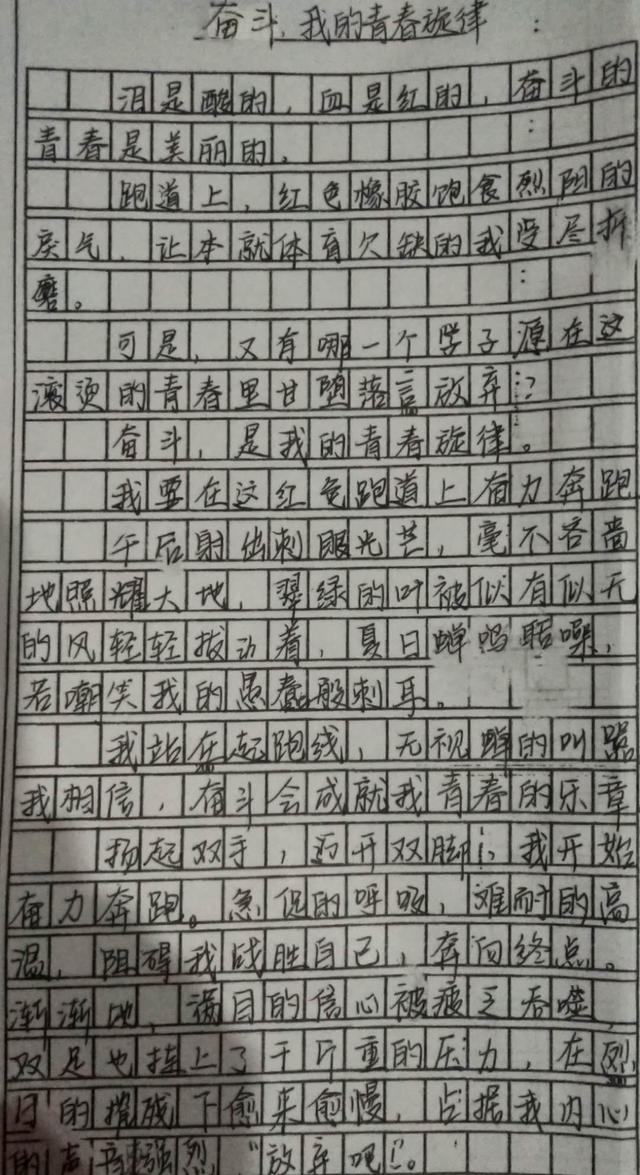 奋斗,我的青春旋律
泪是酸的,血是红的,奋斗的
青春是美丽的。
跑道上,红色橡胶饱食烈阳的
戾气,让本就体育欠缺的我受尽折
磨。
可是,又有哪一个学子源在这
滚烫的青春里甘堕落言放弃?
奋斗,是我的青春旋律。
我要在这红色跑道上奋力奔跑
午后射出刺眼光芒,毫不吝啬
地照耀大地,翠绿的叶被似有似无
的风轻轻拨动着,夏日蝉鸣聒噪,
若嘲笑我的愚蠢般刺耳。
我站在起跑线,无视蝉的叫嚣
我相信,奋斗会成就我青春的乐章
扬起双手,迈开双脚!我开始
奋力奔跑。急促的呼吸,难耐的高
温,阻碍我战胜自己,奔向终点。
渐渐地,满目的信心被疲乏吞噬,
双足也挂上了千斤重的压力,在烈
日的摧残下愈来愈慢,占据我内心
的声音强烈,“放弃吧!。